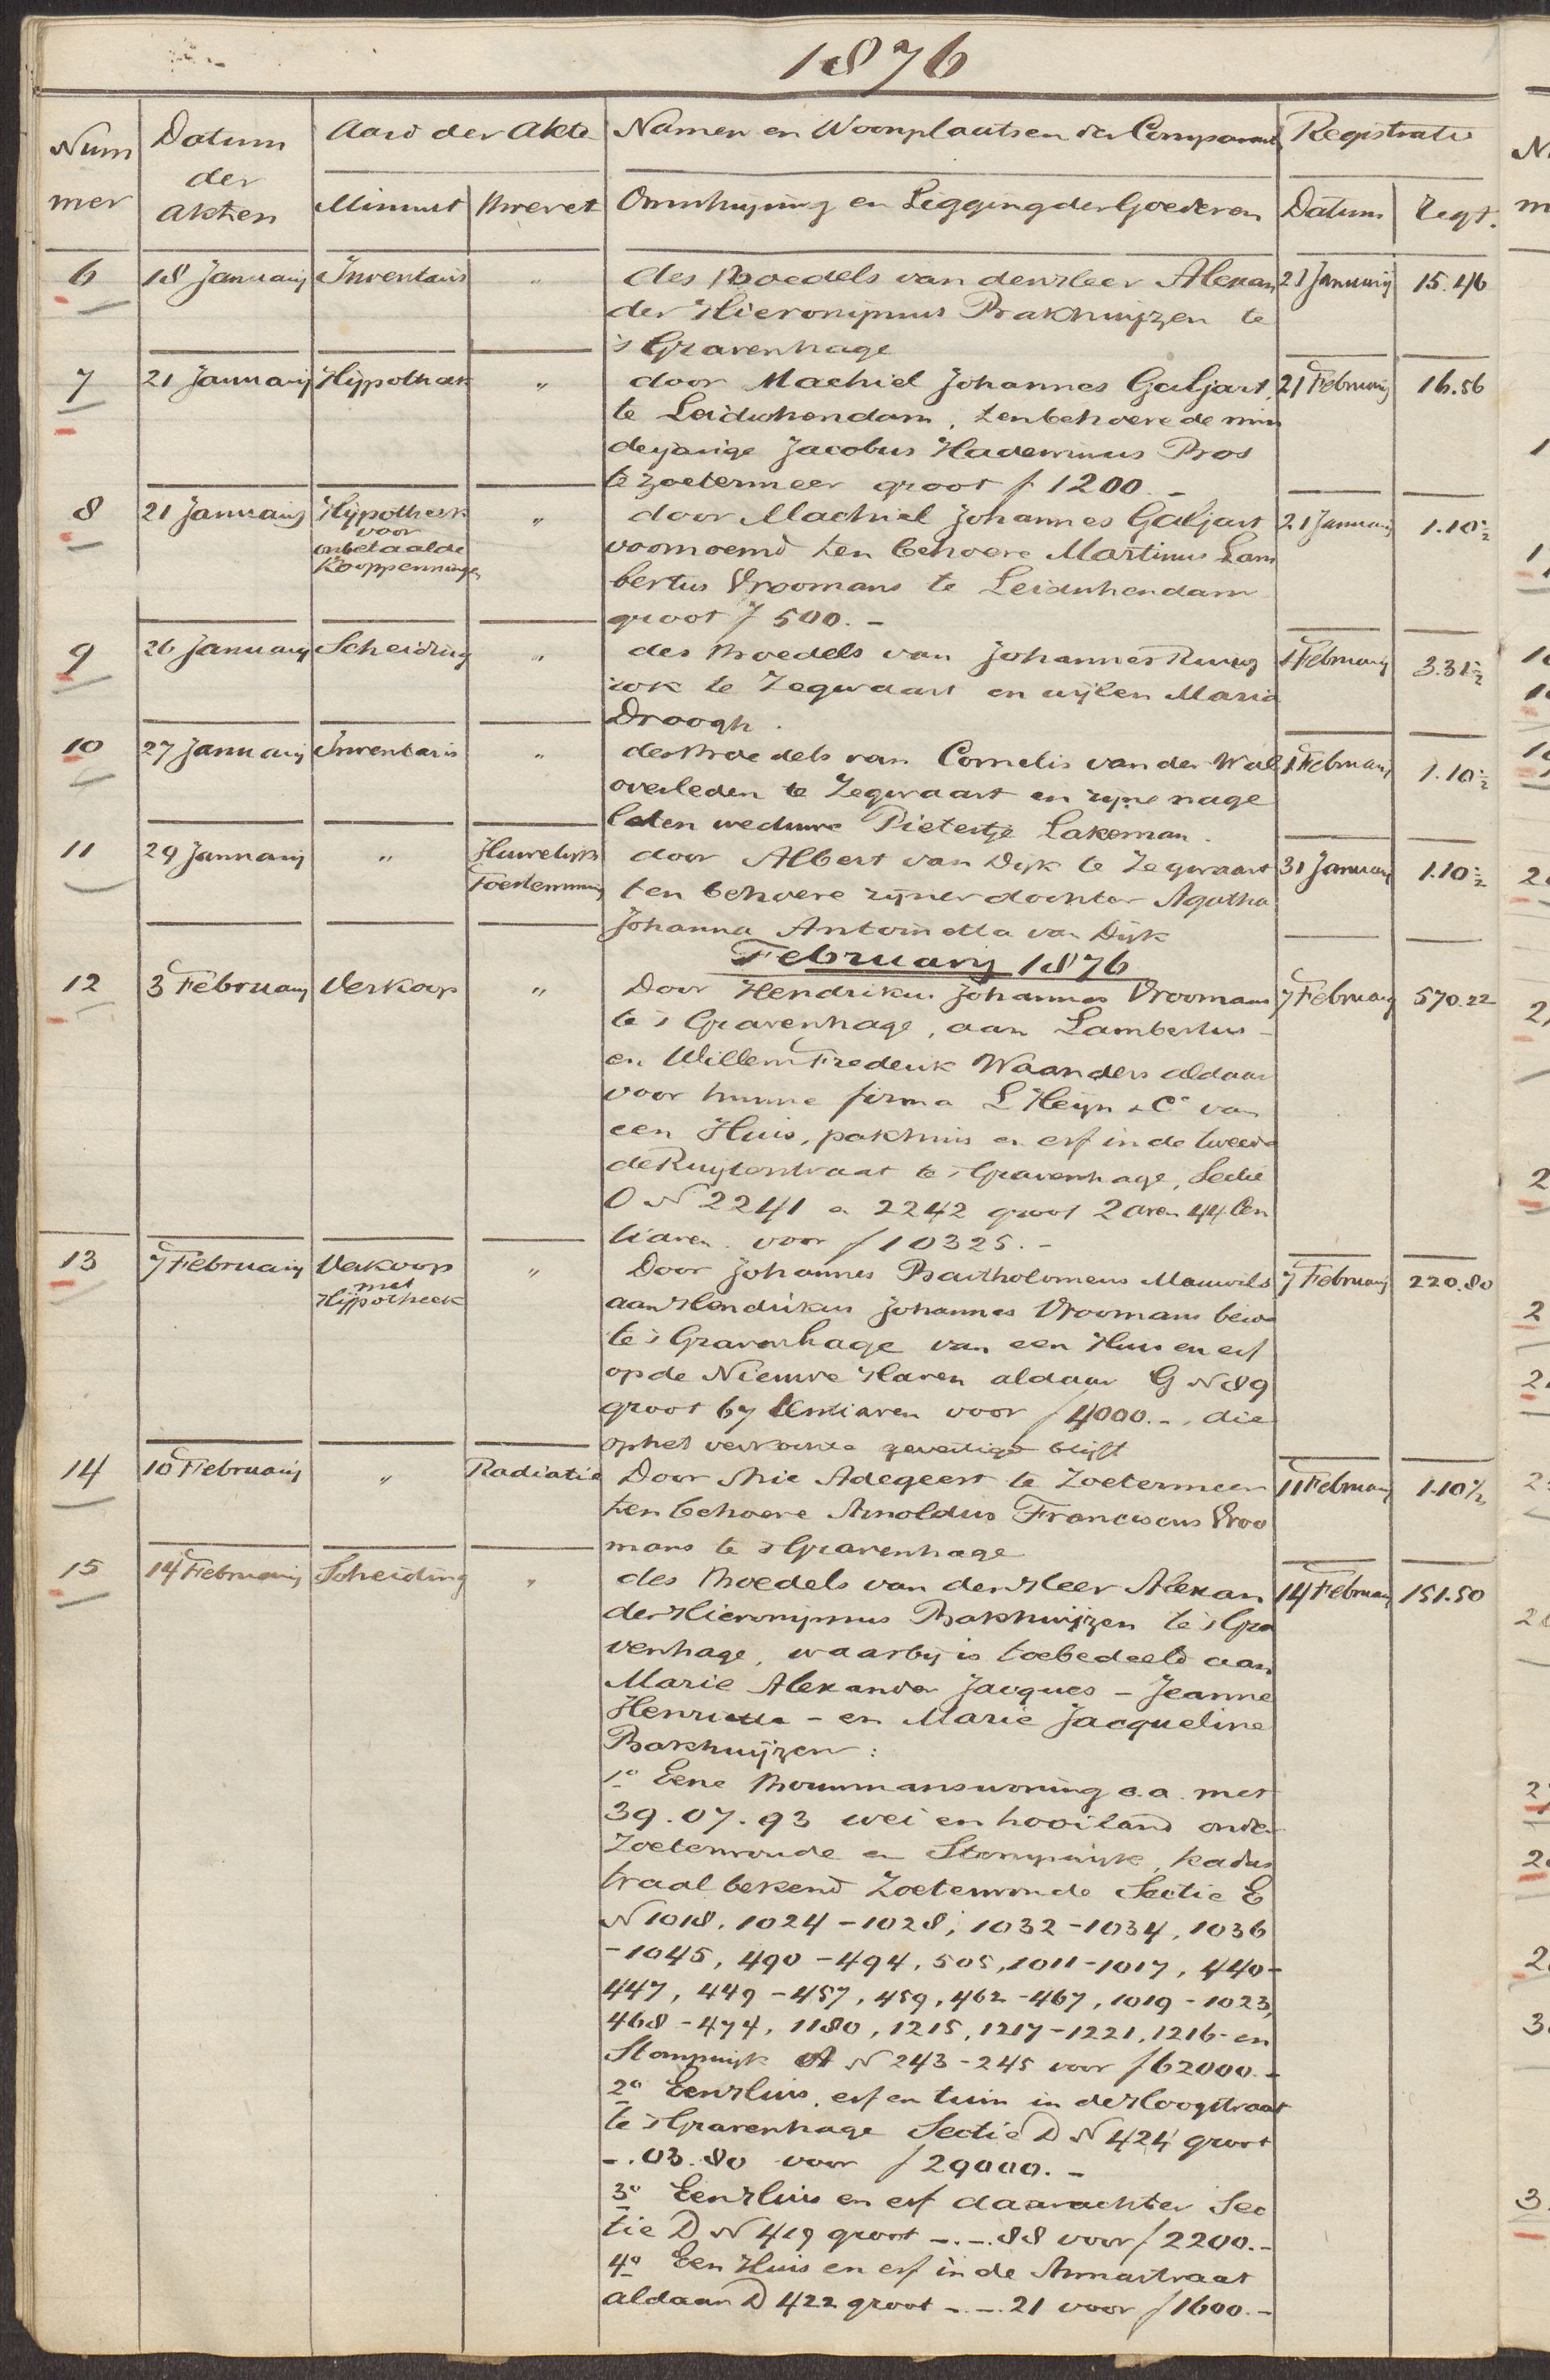 1876
Num
mer
Datum
der
Akten
Aard der Akte
Minuut
Brevet
Namen en Woonplaatsen der Comparant
Omschrijving en Ligging der Goederen
Registratie
Datum
Regt.
6 18 Januarij Inventaris " des Boedels van den Heer Alexan 21 Januarij 15.46
der Hieronijmus Bakhuijzen te
's Gravenhage
7 21 Januarij Hijpotheek " door Machiel Johannes Galjart, 21 Februarij 16.56
te Leidschendam, ten behoeve de min
derjarige Jacobus Bros
te Zoetermeer groot f 1200.-
8 21 Januarij Hijpotheek " door Machiel Johannes Galjart 21 Januarij 1.10½
voor
onbetaalde
Kooppenningen
voornoemd ten behoeve Martinus Lam
bertus Vroomans te Leidschendam
groot f 500.-
9 26 Januarij Scheiding " des Boedels van Johannes 1 Februarij 3.31½
te Zegwaart en wijlen Maria
Droogh.
10 27 Januarij Inventaris " des Boedels van Cornelis van der Wal 1 Februarij 1.10½
overleden te Zegwaart en zijne nage
laten weduwe Pietertje Lakeman.
11 29 Januarij " Huwelijks door Albert van Dijk te Zegwaart 31 Januarij 1.10½
Toestemming ten behoeve zijner dochter Agatha
Johanna Antoinetta van Dijk
Februarij 1876
12 3 Februarij Verkoop " Door Hendrikus Johannes Vroomans 7 Februarij 570.22
te 's Gravenhage, aan Lambertus -
en Willem Frederik Waanders aldaar
voor hunne firma L Heijn & C° van
een Huis, pakhuis en erf in de tweede
de Ruijterstraat te 's Gravenhage, Sectie
O N 2241 en 2242 groot 2 aren 44 Cen
tiaren. voor f 10325.-
13 7 Februarij Verkoop " Door Johannes Bartholomeus 7 Februarij 220.80
met
Hijpotheek
aan Hendrikus Johannes Vroomans beide
te 's Gravenhage van een Huis en erf
op de Nieuwe Haven aldaar G N 89
groot 67 Centiaren voor f 4000.-, die
op het verkochte gevestigd blijft
14 10 Februarij " Radiatie Door Arie Adegeest te Zoetermeer 11 Februarij 1.10½
ten behoeve Arnoldus Franciscus Vroo
mans te 's Gravenhage
15 14 Februarij Scheiding " des Boedels van den Heer Alexan 14 Februarij 151.50
der Hieronijmus Bakhuijzen te 's Gra
venhage, waarbij is toebedeeld aan
Marie Alexander Jacques - Jeanne
Henriette - en Marie Jacqueline
Bakhuijzen:
1° Eene Bouwmanswoning c.a. met
39.07.93 wei en hooiland onder
Zoeterwoude en Stompwijk, kadas
traal bekend Zoeterwoude Sectie E
N 1018, 1024-1028, 1032-1034, 1036
-1045, 490-494, 505, 1011-1017, 440-
447, 449-457, 459, 462-467, 1019-1023,
468-474, 1180, 1215, 1217-1221, 1216 en
Stompwijk A N 243-245 voor f 62000.-
2° Een Huis, erf en tuin in de Hoogstraat
te 's Gravenhage Sectie D N 424 groot
-.03.80 voor f 29000.-
3° Een Huis en erf daarachter Sec
tie D N 419 groot -.-.88 voor f 2200.-
4° Een Huis en erf in de Annastraat
aldaar D 422 groot -.-.21 voor f 1600.-